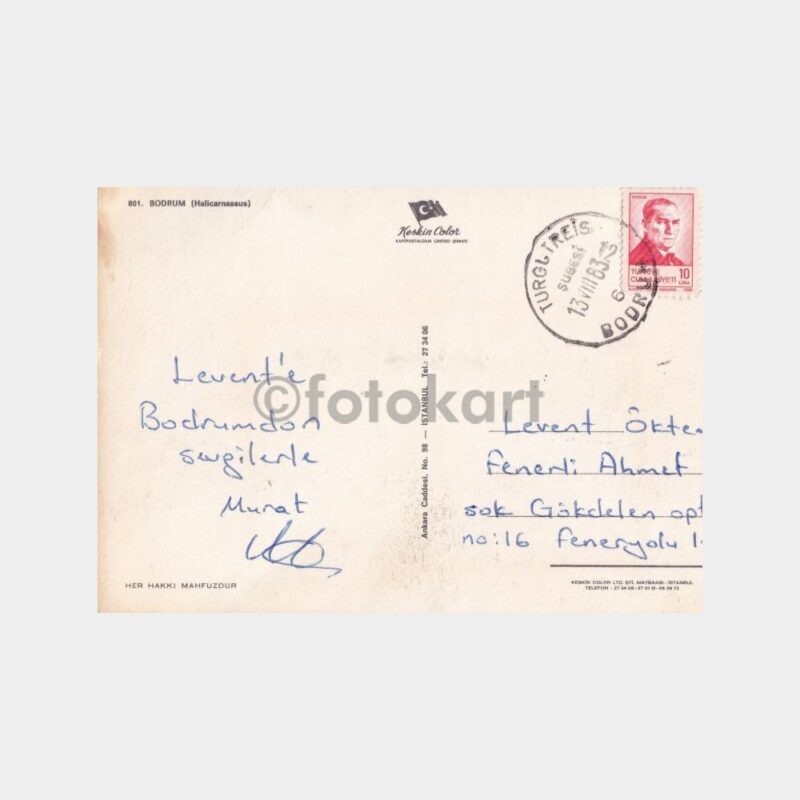 801. BODRUM (Halicarnassus)
Keskin Color
KARTPOSTALCILIK LIMITED ŞİRKETİ
POSTA
TÜRKİYE
CUMHURİYETİ
10
LİRA
ANKARA
TURGUTREİS
ŞUBESİ
13 VIII 83.12
6
BODRUM
Levent'e
Bodrumdan
sevgilerle
Murat
©fotokart
Ankara Caddesi, No. 98 — İSTANBUL Tel.: 27 34 06
Levent Ökte
Fenerli Ahmet
sok Gökdelen apt
no:16 Feneryolu
HER HAKKI MAHFUZDUR
KESKİN COLOR LTD. ŞTİ. MATBAASI - İSTANBUL
TELEFON :